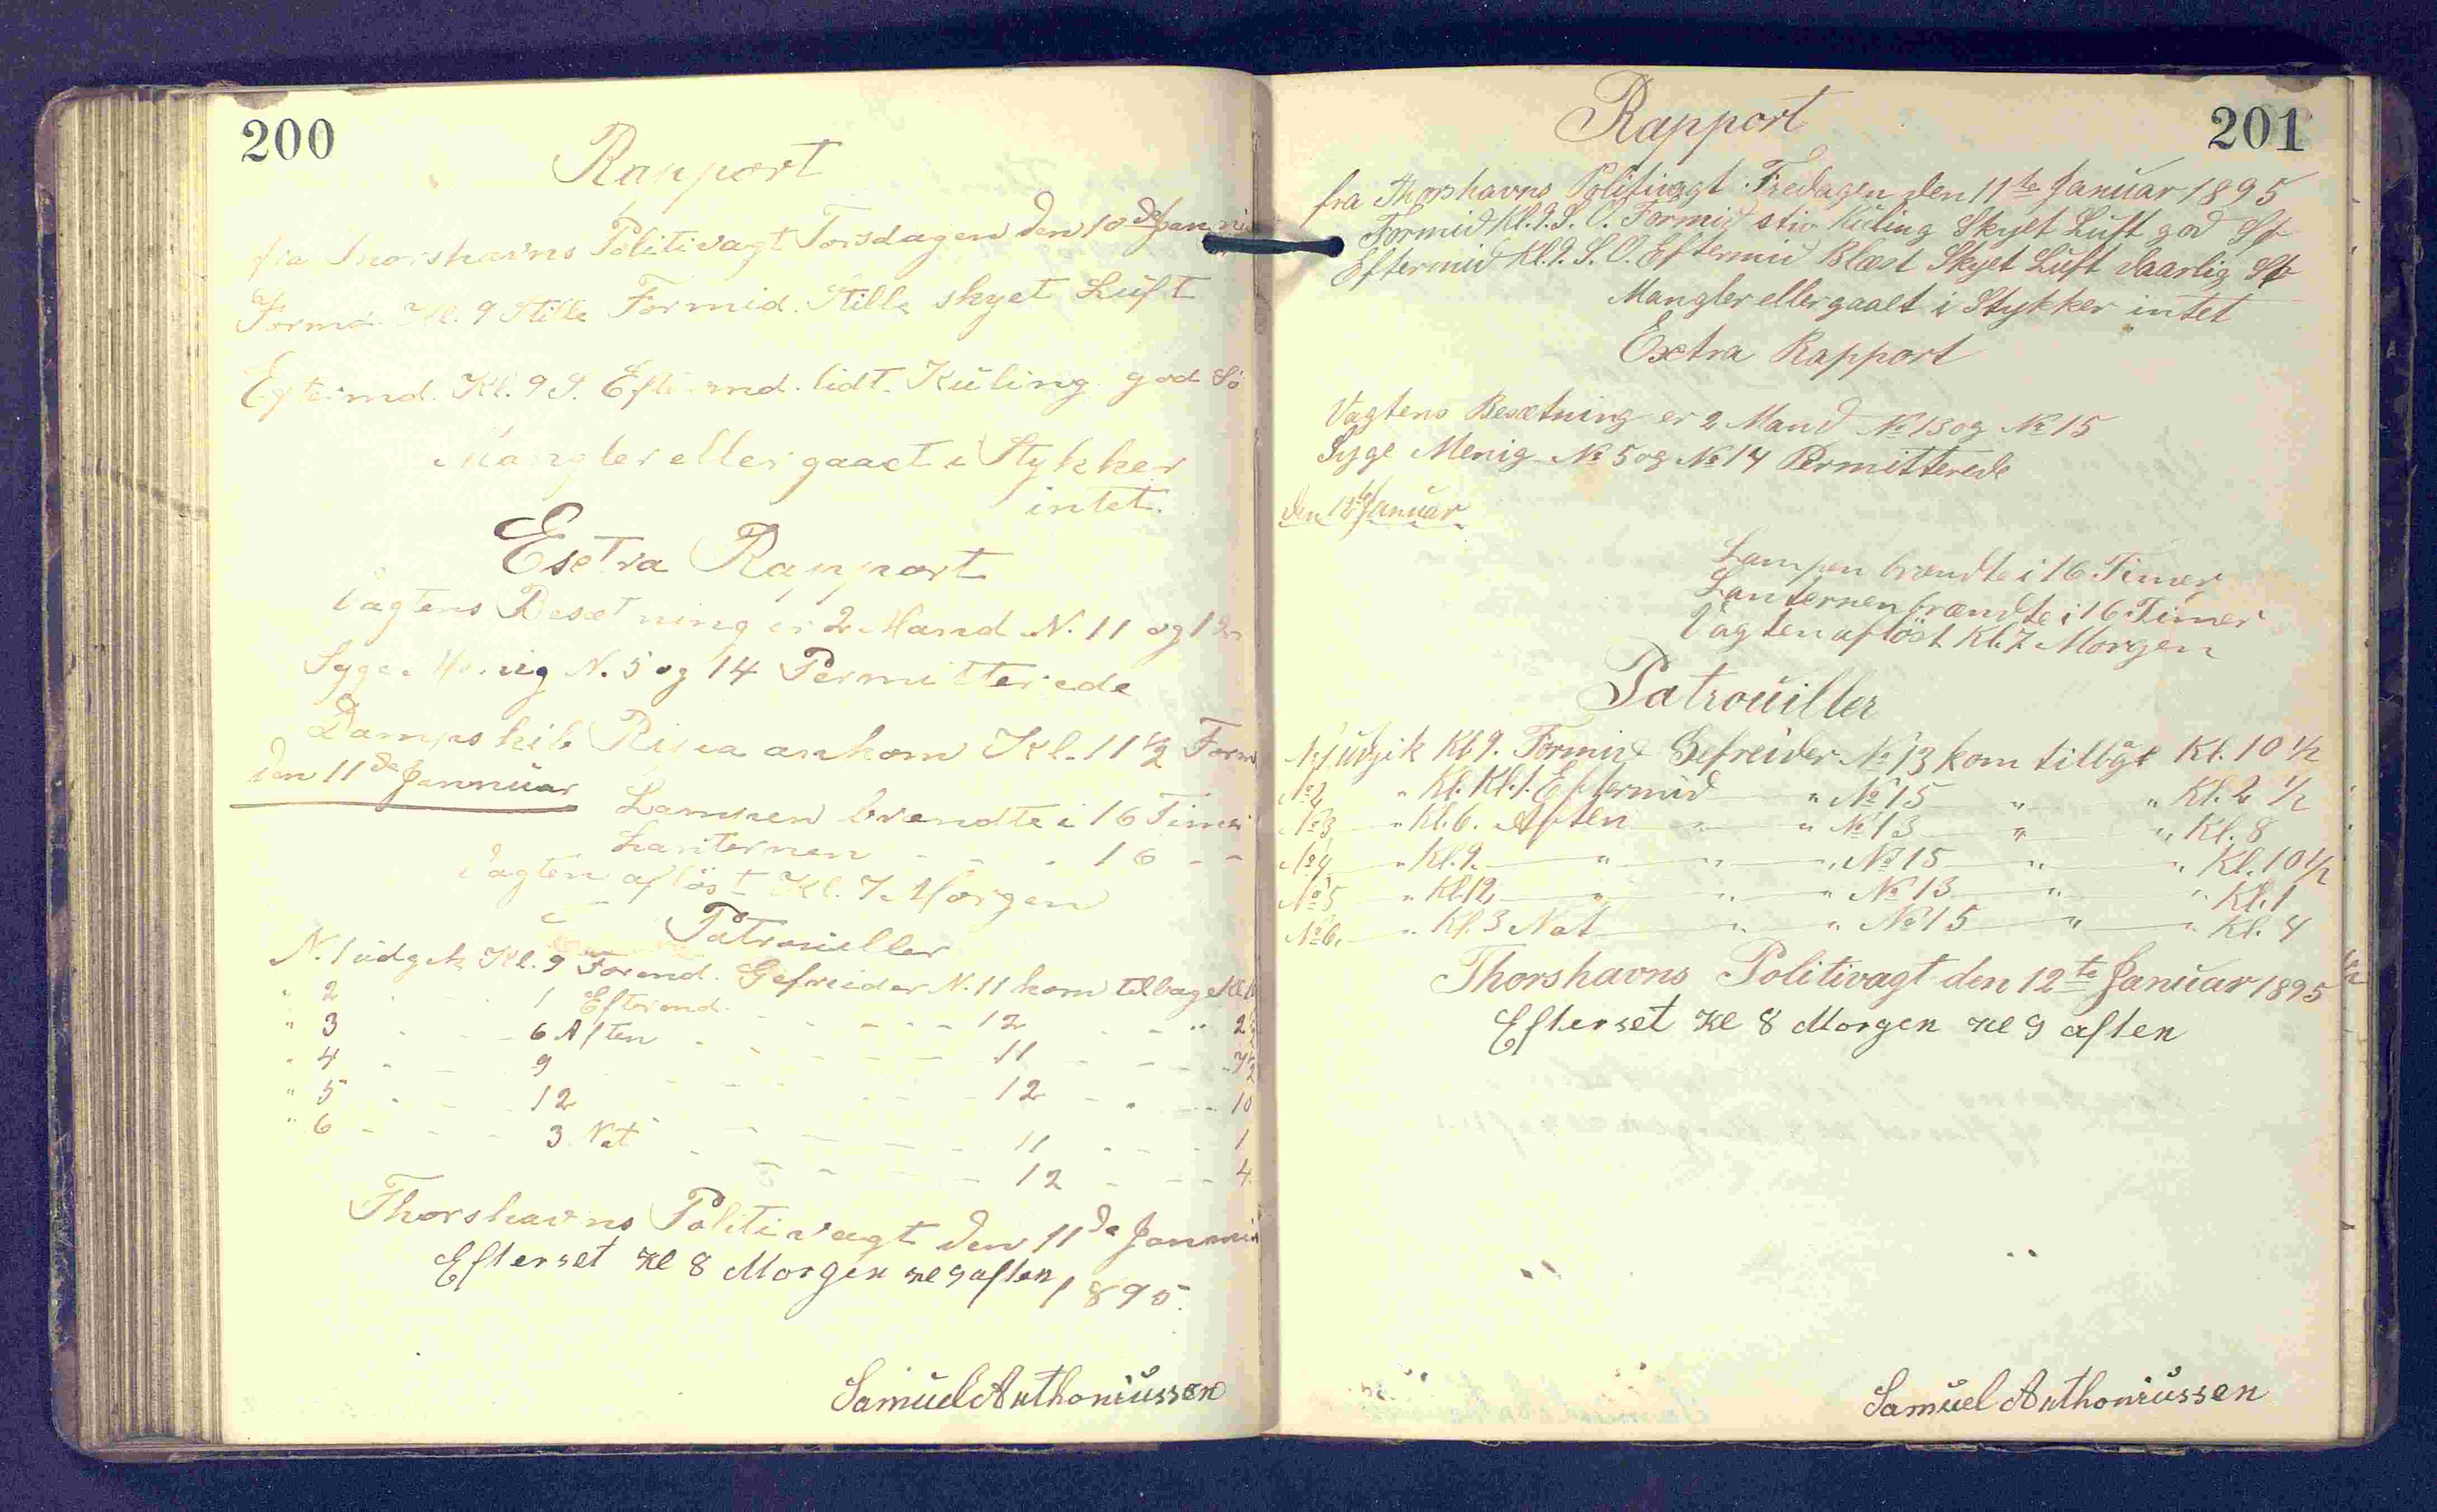 200
Rapport
fra Thorshavns Politivagt Torsdagen den 10de Jannu
Formd. Kl. 9 Stille Formid. Stille skyet Luft
Eftermd. Kl. 9 S. Eftermd. lidt. Kuling god Sö
Mangler eller gaaet i Stykker
intet.
Exstra Rapport
Vagtens Besætning er 2 Mand N. 11 og 12
Syge Menig N. 5 og 14 Permitterede
Dampskib ankom Kl. 11 1/2 Form
den 11de Jannuar
Lampen brendte i 16 Timer
Lanternen - - - 16 - -
Vagten aflöst Kl. 7 Morgen
Patrouiller
N. 1 udgik Kl. 9 Formd. Gefreider N. 11 kom tilbage Kl.
" 2 - - 1 Eftermd. - - - - 12 - - " 2 1/2
" 3 - - 6 Aften - - - - 11 - - - 7 1/2
" 4 - - 9 - - - - 12 - - - 10
" 5 - - 12 - - - - 11 - - - 1
" 6 - - 3 Nat - - - - 12 - - - 4
Thorshavns Politivagt den 11de Jannu
1895.
Efterset Kl 8 Morgen Kl 9 aften
Samuel Anthoniussen
201
Rapport
fra Thorshavns Politivagt Fredagen den 11te Januar 1895
Formid Kl. 9. S. O. Formid stiv Kuling Skyet Luft god Sö
Eftermid Kl. 9. S. O. Eftermid Blæst Skyet Luft daarlig Sö
Mangler eller gaaet i Stykker intet
Exstra Rapport
Vagtens Besætning er 2 Mand No 13 og No 15
Syge Menig No 5 og No 14 Permitterede
den 12te Januar
Lampen brændte i 16 Timer
Lanternen brændte i 16 Timer
Vagten aflöst Kl. 7 Morgen
Patrouiller
No 1 udgik Kl 9. Formid Gefreider No 13 kom tilbage Kl. 10 1/2
No 2 " Kl. Kl. 1. Eftermid " No 15 " " Kl. 2 1/2
No 3 " Kl. 6. Aften " " No 13 " " Kl. 8
No 4 " Kl. 9 " " " No 15 " " Kl. 10 1/2
No 5 " Kl 12 " " " No 13 " " Kl. 1
No 6. " Kl. 3 Nat " " No 15 " " Kl. 4
Thorshavns Politivagt den 12te Januar 1895
Efterset Kl 8 Morgen Kl 9 aften
Samuel Anthoniussen